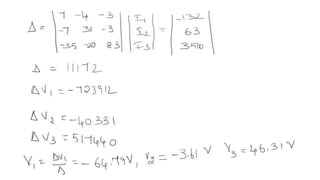 7 -4 -3 I₁ -132
Δ = -7 31 -3 I₂ = 63
-35 -20 83 I₃ 3500
Δ = 11172
ΔV₁ = -723912
ΔV₂ = -40331
ΔV₃ = 517440
V₁ = ΔV₁/Δ = -64.79V, V₂ = -3.61 V V₃ = 46.31V